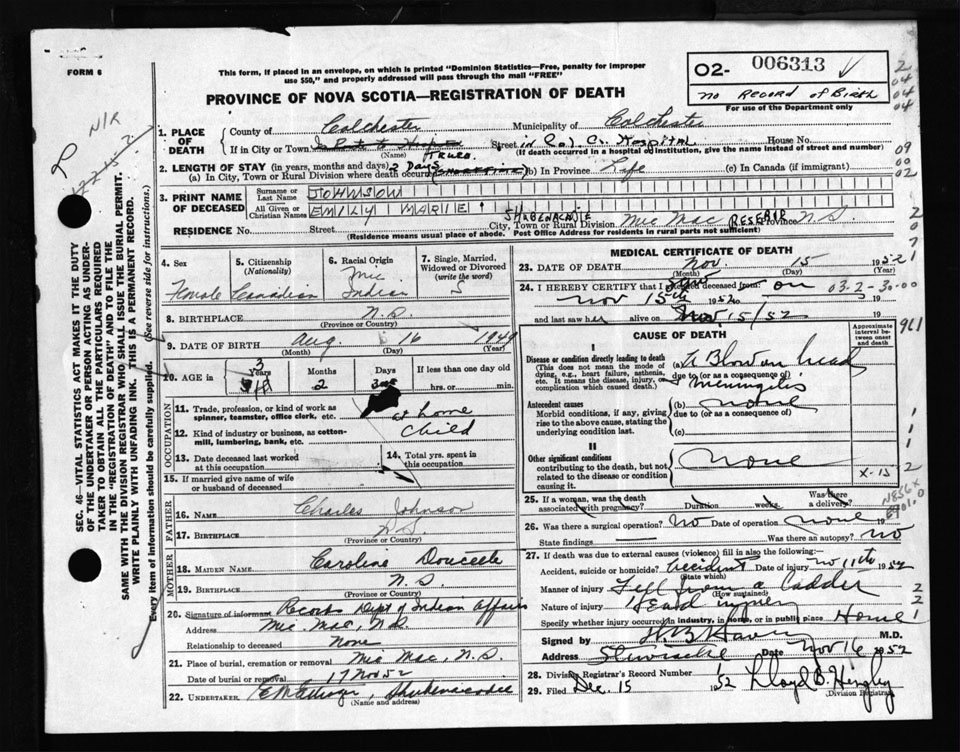 FORM 6
This form, if placed in an envelope, on which is printed "Dominion Statistics—Free, penalty for improper
use $50," and properly addressed will pass through the mail "FREE"
O2- 006313
No Record of Birth
For use of the Department only
PROVINCE OF NOVA SCOTIA—REGISTRATION OF DEATH
N/R
1. PLACE OF DEATH
County of Colchester Municipality of Colchester
If in City or Town Street in Col. C. Hospital House No.
(Name) TRURO (If death occurred in a hospital or institution, give the name instead of street and number)
2. LENGTH OF STAY (in years, months and days)
(a) In City, Town or Rural Division where death occurred 2 Days (b) In Province Life (c) In Canada (if immigrant)
3. PRINT NAME OF DECEASED
Surname or Last Name JOHNSON
All Given or Christian Names EMILY MARIE
RESIDENCE No. Street SHUBENACADIE City, Town or Rural Division Mic Mac RESERVE Province N.S.
(Residence means usual place of abode. Post Office Address for residents in rural parts not sufficient)
4. Sex Female
5. Citizenship (Nationality) Canadian
6. Racial Origin Mic Indian
7. Single, Married, Widowed or Divorced (write the word) S
8. BIRTHPLACE N.S.
(Province or Country)
9. DATE OF BIRTH Aug. 16
(Month) (Day) (Year)
10. AGE in 3 Years 2 Months Days If less than one day old hrs. or min.
OCCUPATION
11. Trade, profession, or kind of work as spinner, teamster, office clerk, etc. at home
12. Kind of industry or business, as cotton-mill, lumbering, bank, etc. child
13. Date deceased last worked at this occupation
14. Total yrs. spent in this occupation
15. If married give name of wife or husband of deceased
FATHER
16. NAME Charles Johnson
17. BIRTHPLACE N.S.
(Province or Country)
MOTHER
18. MAIDEN NAME Caroline Doucette
19. BIRTHPLACE N.S.
(Province or Country)
20. Signature of informant Records Dept of Indian Affairs
Address Mic. Mac, N.S.
Relationship to deceased None
21. Place of burial, cremation or removal Mic Mac, N.S.
Date of burial or removal 17 Nov 52
22. UNDERTAKER Shubenacadie
(Name and address)
MEDICAL CERTIFICATE OF DEATH
23. DATE OF DEATH Nov. 15 1952
(Month) (Day) (Year)
24. I HEREBY CERTIFY that I saw deceased from on 03-2-30-00
Nov 15th 1952 19
and last saw her alive on Nov 15/52 19
CAUSE OF DEATH
Approximate interval between onset and death
I
Disease or condition directly leading to death
(This does not mean the mode of dying, e.g., heart failure, asthenia, etc. It means the disease, injury, or complication which caused death.)
(a) Blow on head
due to (or as a consequence of)
Meningitis
Antecedent causes
Morbid conditions, if any, giving rise to the above cause, stating the underlying condition last.
(b) none
due to (or as a consequence of)
(c)
II
Other significant conditions
contributing to the death, but not related to the disease or condition causing it.
None
X-15
25. If a woman, was the death associated with pregnancy? Duration weeks Was there a delivery?
26. Was there a surgical operation? No Date of operation none 19
State findings Was there an autopsy? No
27. If death was due to external causes (violence) fill in also the following:
Accident, suicide or homicide? accident Date of injury Nov 11th 1952
(State which)
Manner of injury Fell from a ladder
(How sustained)
Nature of injury Head injury
Specify whether injury occurred in industry, in home, or in public place Home
Signed by M.D.
Address Date Nov 16 1952
28. Division Registrar's Record Number
29. Filed Dec. 15 1952 Lloyd B. Hingley
Division Registrar
SEC. 46—VITAL STATISTICS ACT MAKES IT THE DUTY
OF THE UNDERTAKER OR PERSON ACTING AS UNDERTAKER TO OBTAIN ALL THE PARTICULARS REQUIRED
IN THE "REGISTRATION OF DEATH" AND TO FILE THE
SAME WITH THE DIVISION REGISTRAR WHO SHALL ISSUE THE BURIAL PERMIT.
WRITE PLAINLY WITH UNFADING INK. THIS IS A PERMANENT RECORD.
Every item of information should be carefully supplied. (See reverse side for instructions.)